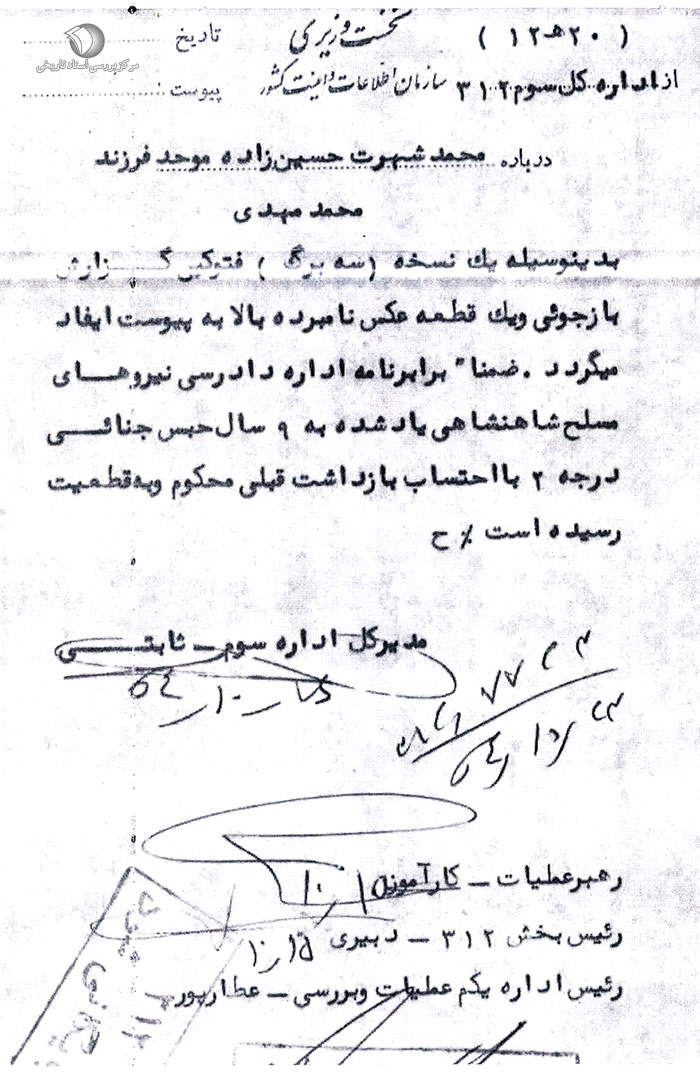 نخست وزیری
سازمان اطلاعات و امنیت کشور
مرکز بررسی اسناد تاریخی
( ۲۰ ه‍ ۱۲ )
از اداره کل سوم ۳۱۲
تاریخ
پیوست
درباره محمد شهرت حسین زاده موحد فرزند
محمد مهدی
بدینوسیله یك نسخه (سه برگ ) فتوکپی گـــزارش
بازجوئی ویك قطعه عکس نامبرده بالا به پیوست ایفاد
میگردد . ضمنا" برابرنامه اداره دادرسی نیروهــای
مسلح شاهنشاهی یادشده به ۹ سال حبس جنائــی
درجه ۲ بااحتساب بازداشت قبلی محکوم وبه قطعیت
رسیده است ٪ ح
مدیرکل اداره سوم ـ ثابتــی
رهبرعملیات ـ کارآموزی
رئیس بخش ۳۱۲ ـ دبیری
رئیس اداره یکم عملیات وبررسی ـ عطارپور